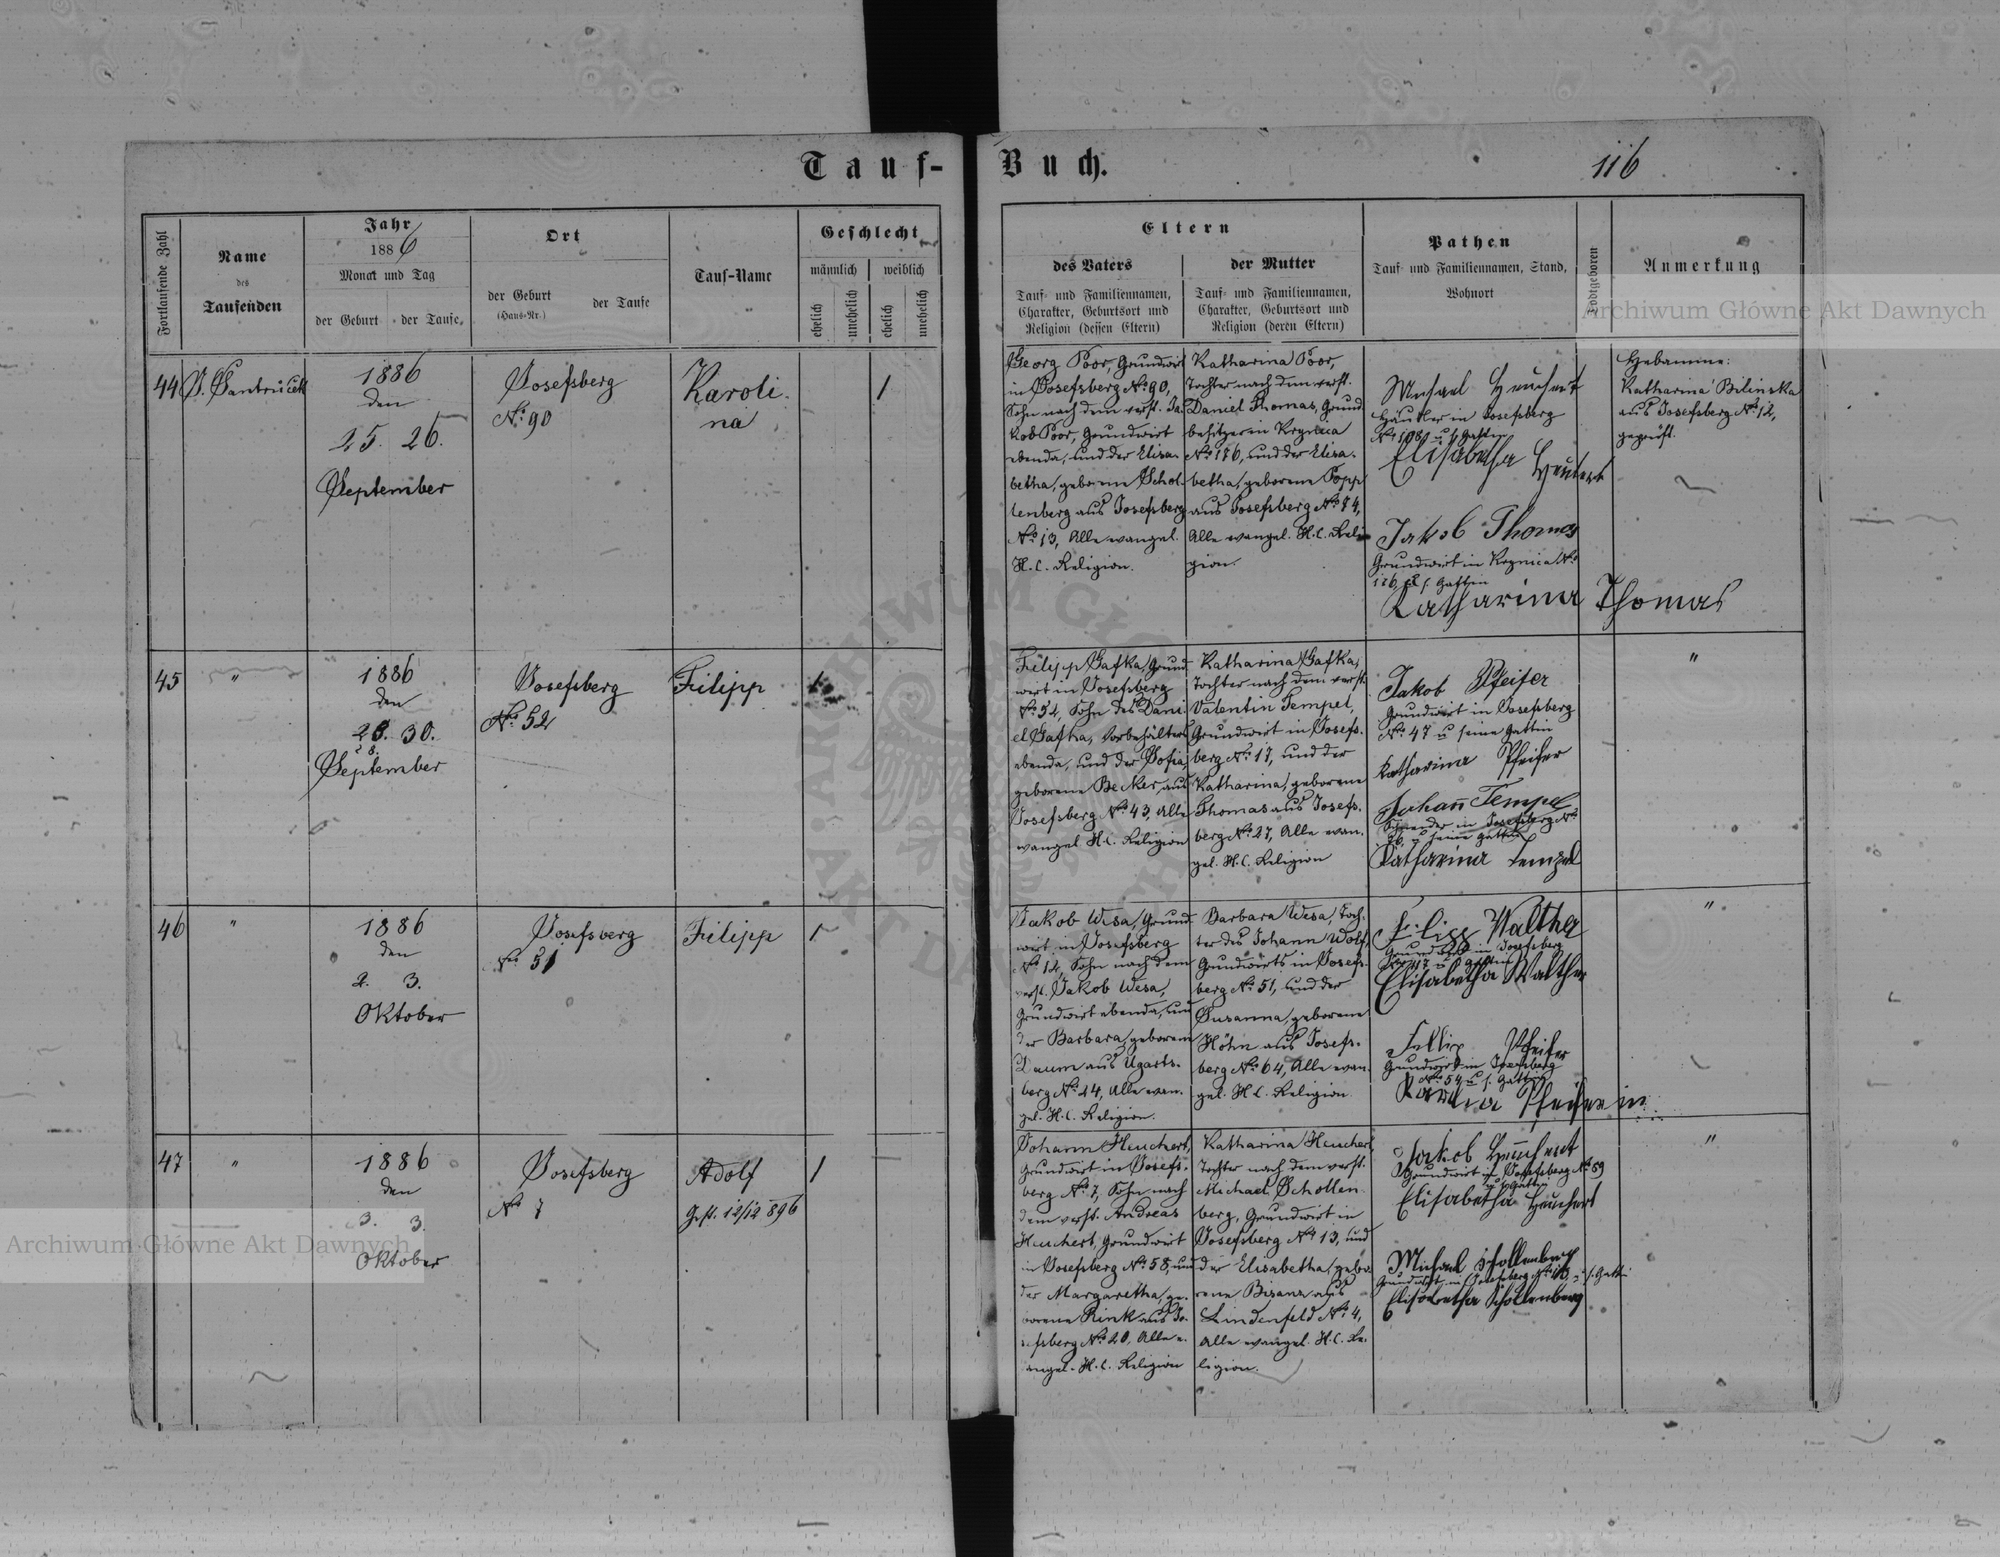 Tauf-Buch.
116
Fortlaufende Zahl
Name
des
Taufenden
Jahr
1886
Monat und Tag
der Geburt
der Taufe.
Ort
der Geburt
(Haus-Nr.)
der Taufe
Tauf-Name
Geschlecht
männlich
weiblich
ehelich
unehelich
ehelich
unehelich
Eltern
des Vaters
Tauf- und Familiennamen,
Charakter, Geburtsort und
Religion (dessen Eltern)
der Mutter
Tauf- und Familiennamen,
Charakter, Geburtsort und
Religion (deren Eltern)
Pathen
Tauf- und Familiennamen, Stand,
Wohnort
Todtgeboren
Anmerkung
44
1886
den
25. 26.
September
Josefsberg
No 90
Karoli-
na
1
Georg Poor, Grundwirt
in Josefsberg No 90,
Sohn nach dem verst. Ja-
kob Poor, Grundwirt
ebenda, und der Elisa-
betha, geborene Schol-
lenberg aus Josefsberg
No 13, Alle evangel.
H.C. Religion.
Katharina Poor,
Tochter nach dem verst.
Daniel Thomas, Grund-
besitzer in Krynica
No 176, und der Elisa-
betha, geborene Popp
aus Josefsberg No 74,
Alle evangel. H.C. Reli-
gion.
Michael Heuchert
Häusler in Josefsberg
No 108 u. s. Gattin
Elisabetha Heuchert
Jakob Thomas
Grundwirt in Krynica No
176 u. s. Gattin
Katharina Thomas
Hebamine:
Katharina Bilinska
aus Josefsberg No 12,
geprüft.
45
"
1886
den
28. 30.
September
Josefsberg
No 52
Filipp
1
Filipp Gafka, Grund-
wirt in Josefsberg
No 52, Sohn des Dani-
el Gafka, Vorbehälters
ebenda, und der Sofia,
geborene Becker, aus
Josefsberg No 43, Alle
evangel. H.C. Religion
Katharina Gafka,
Tochter nach dem verst.
Valentin Tempel,
Grundwirt in Josefs-
berg No 17, und der
Katharina, geborene
Thomas aus Josefs-
berg No 27, Alle evan-
gel. H.C. Religion
Jakob Pfeifer
Grundwirt in Josefsberg
No 47 u seine Gattin
Katharina Pfeifer
Johann Tempel
Schneider in Josefsberg No
u seine Gattin
Katharina Tempel
"
46
"
1886
den
2. 3.
Oktober
Josefsberg
No 51
Filipp
1
Jakob Wesa, Grund-
wirt in Josefsberg
No 12, Sohn nach dem
verst. Jakob Wesa,
Grundwirt ebenda, und
der Barbara, geborene
Daum aus Ugarts-
berg No 14, Alle evan-
gel. H.C. Religion.
Barbara Wesa, Toch-
ter des Johann Wolf,
Grundwirts in Josefs-
berg No 51, und der
Susanna, geborene
Höhn aus Josefs-
berg No 64, Alle evan-
gel. H.C. Religion
Filipp Walther
Grundwirt in Josefsberg
No 17 u. s. Gattin
Elisabetha Walther
Fillip Pfeifer
Grundwirt in Josefsberg
No 54 u s. Gattin
Karolina Pfeiferin
"
47
"
1886
den
3. 3.
Oktober
Josefsberg
No 7
Adolf
Gest. 12/12 896
1
Johann Heuchert,
Grundwirt in Josefs-
berg No 7, Sohn nach
dem verst. Andreas
Heuchert, Grundwirt
in Josefsberg No 58, und
der Margaretha, ge-
borene Rink aus Jo-
sefsberg No 20, Alle e-
vangel. H.C. Religion
Katharina Heuchert,
Tochter nach dem verst.
Michael Schollen-
berg, Grundwirt in
Josefsberg No 13, und
der Elisabetha, gebo-
rene Bisanz aus
Lindenfeld No 4,
Alle evangel. H.C. Re-
ligion.
Jakob Heuchert
Grundwirt in Josefsberg No 59
u s Gattin
Elisabetha Heuchert
Michael Schollenberg
Grundwirt in Josefsberg No 13 u. s. Gattin
Elisabetha Schollenberg
"
Archiwum Główne Akt Dawnych
Archiwum Główne Akt Dawnych
ARCHIWUM GŁÓWNE AKT DAWNYCH